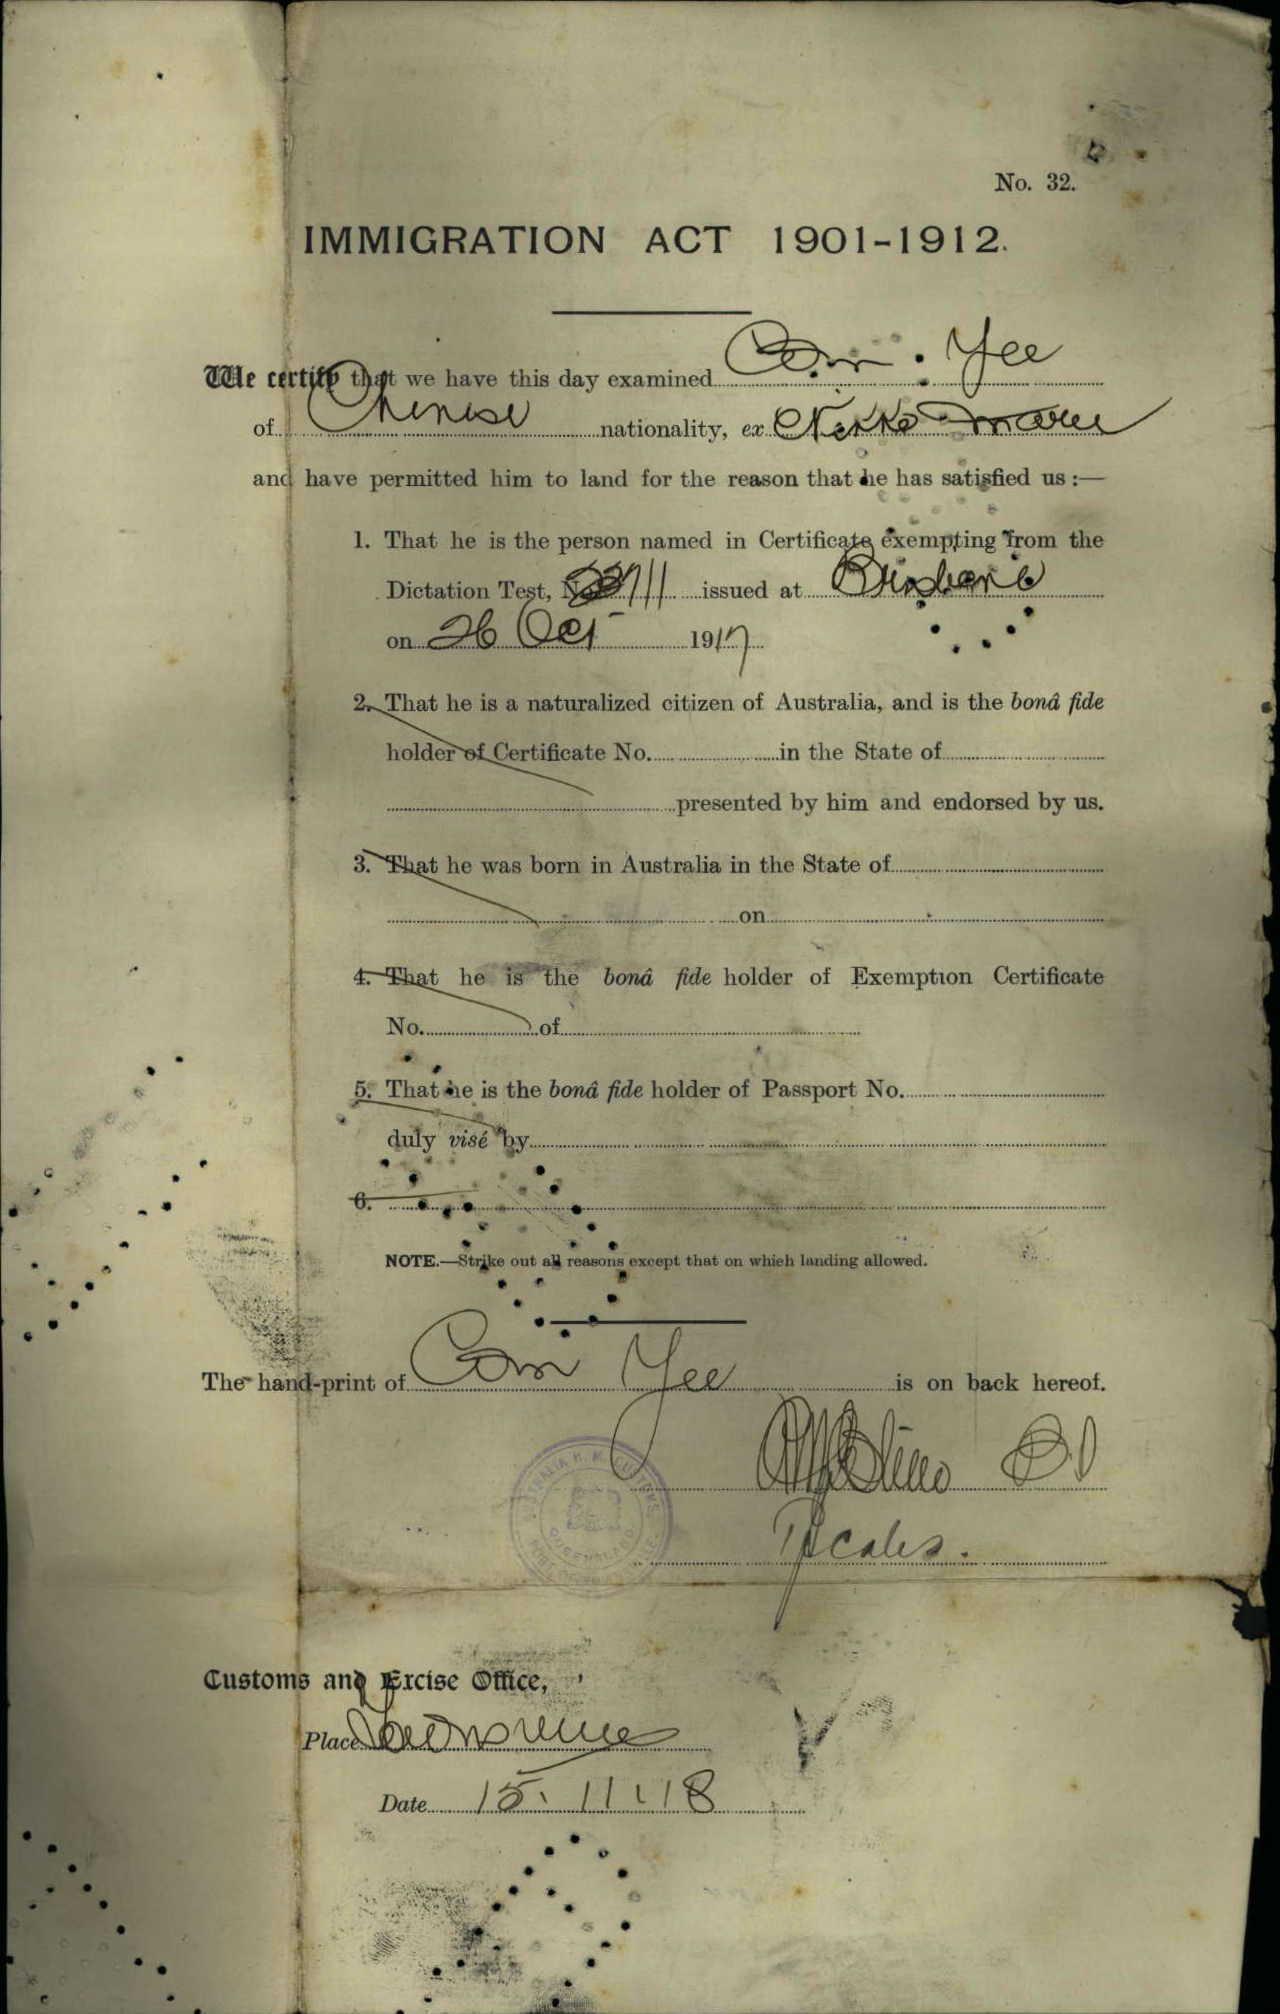 No. 32.
IMMIGRATION ACT 1901-1912.
We certify that we have this day examined Com Yee
of Chinese nationality, ex Nikko Maru
and have permitted him to land for the reason that he has satisfied us :—
1. That he is the person named in Certificate exempting from the
Dictation Test, No. issued at Brisbane
on 26 Oct 1917
2. That he is a naturalized citizen of Australia, and is the bonâ fide
holder of Certificate No. in the State of
presented by him and endorsed by us.
3. That he was born in Australia in the State of
on
4. That he is the bonâ fide holder of Exemption Certificate
No. of
5. That he is the bonâ fide holder of Passport No.
duly visé by
6.
NOTE.—Strike out all reasons except that on which landing allowed.
The hand-print of Com Yee is on back hereof.
AUSTRALIA H. M. CUSTOMS
QUEENSLAND
Customs and Excise Office,
Place Townsville
Date 15.11.18